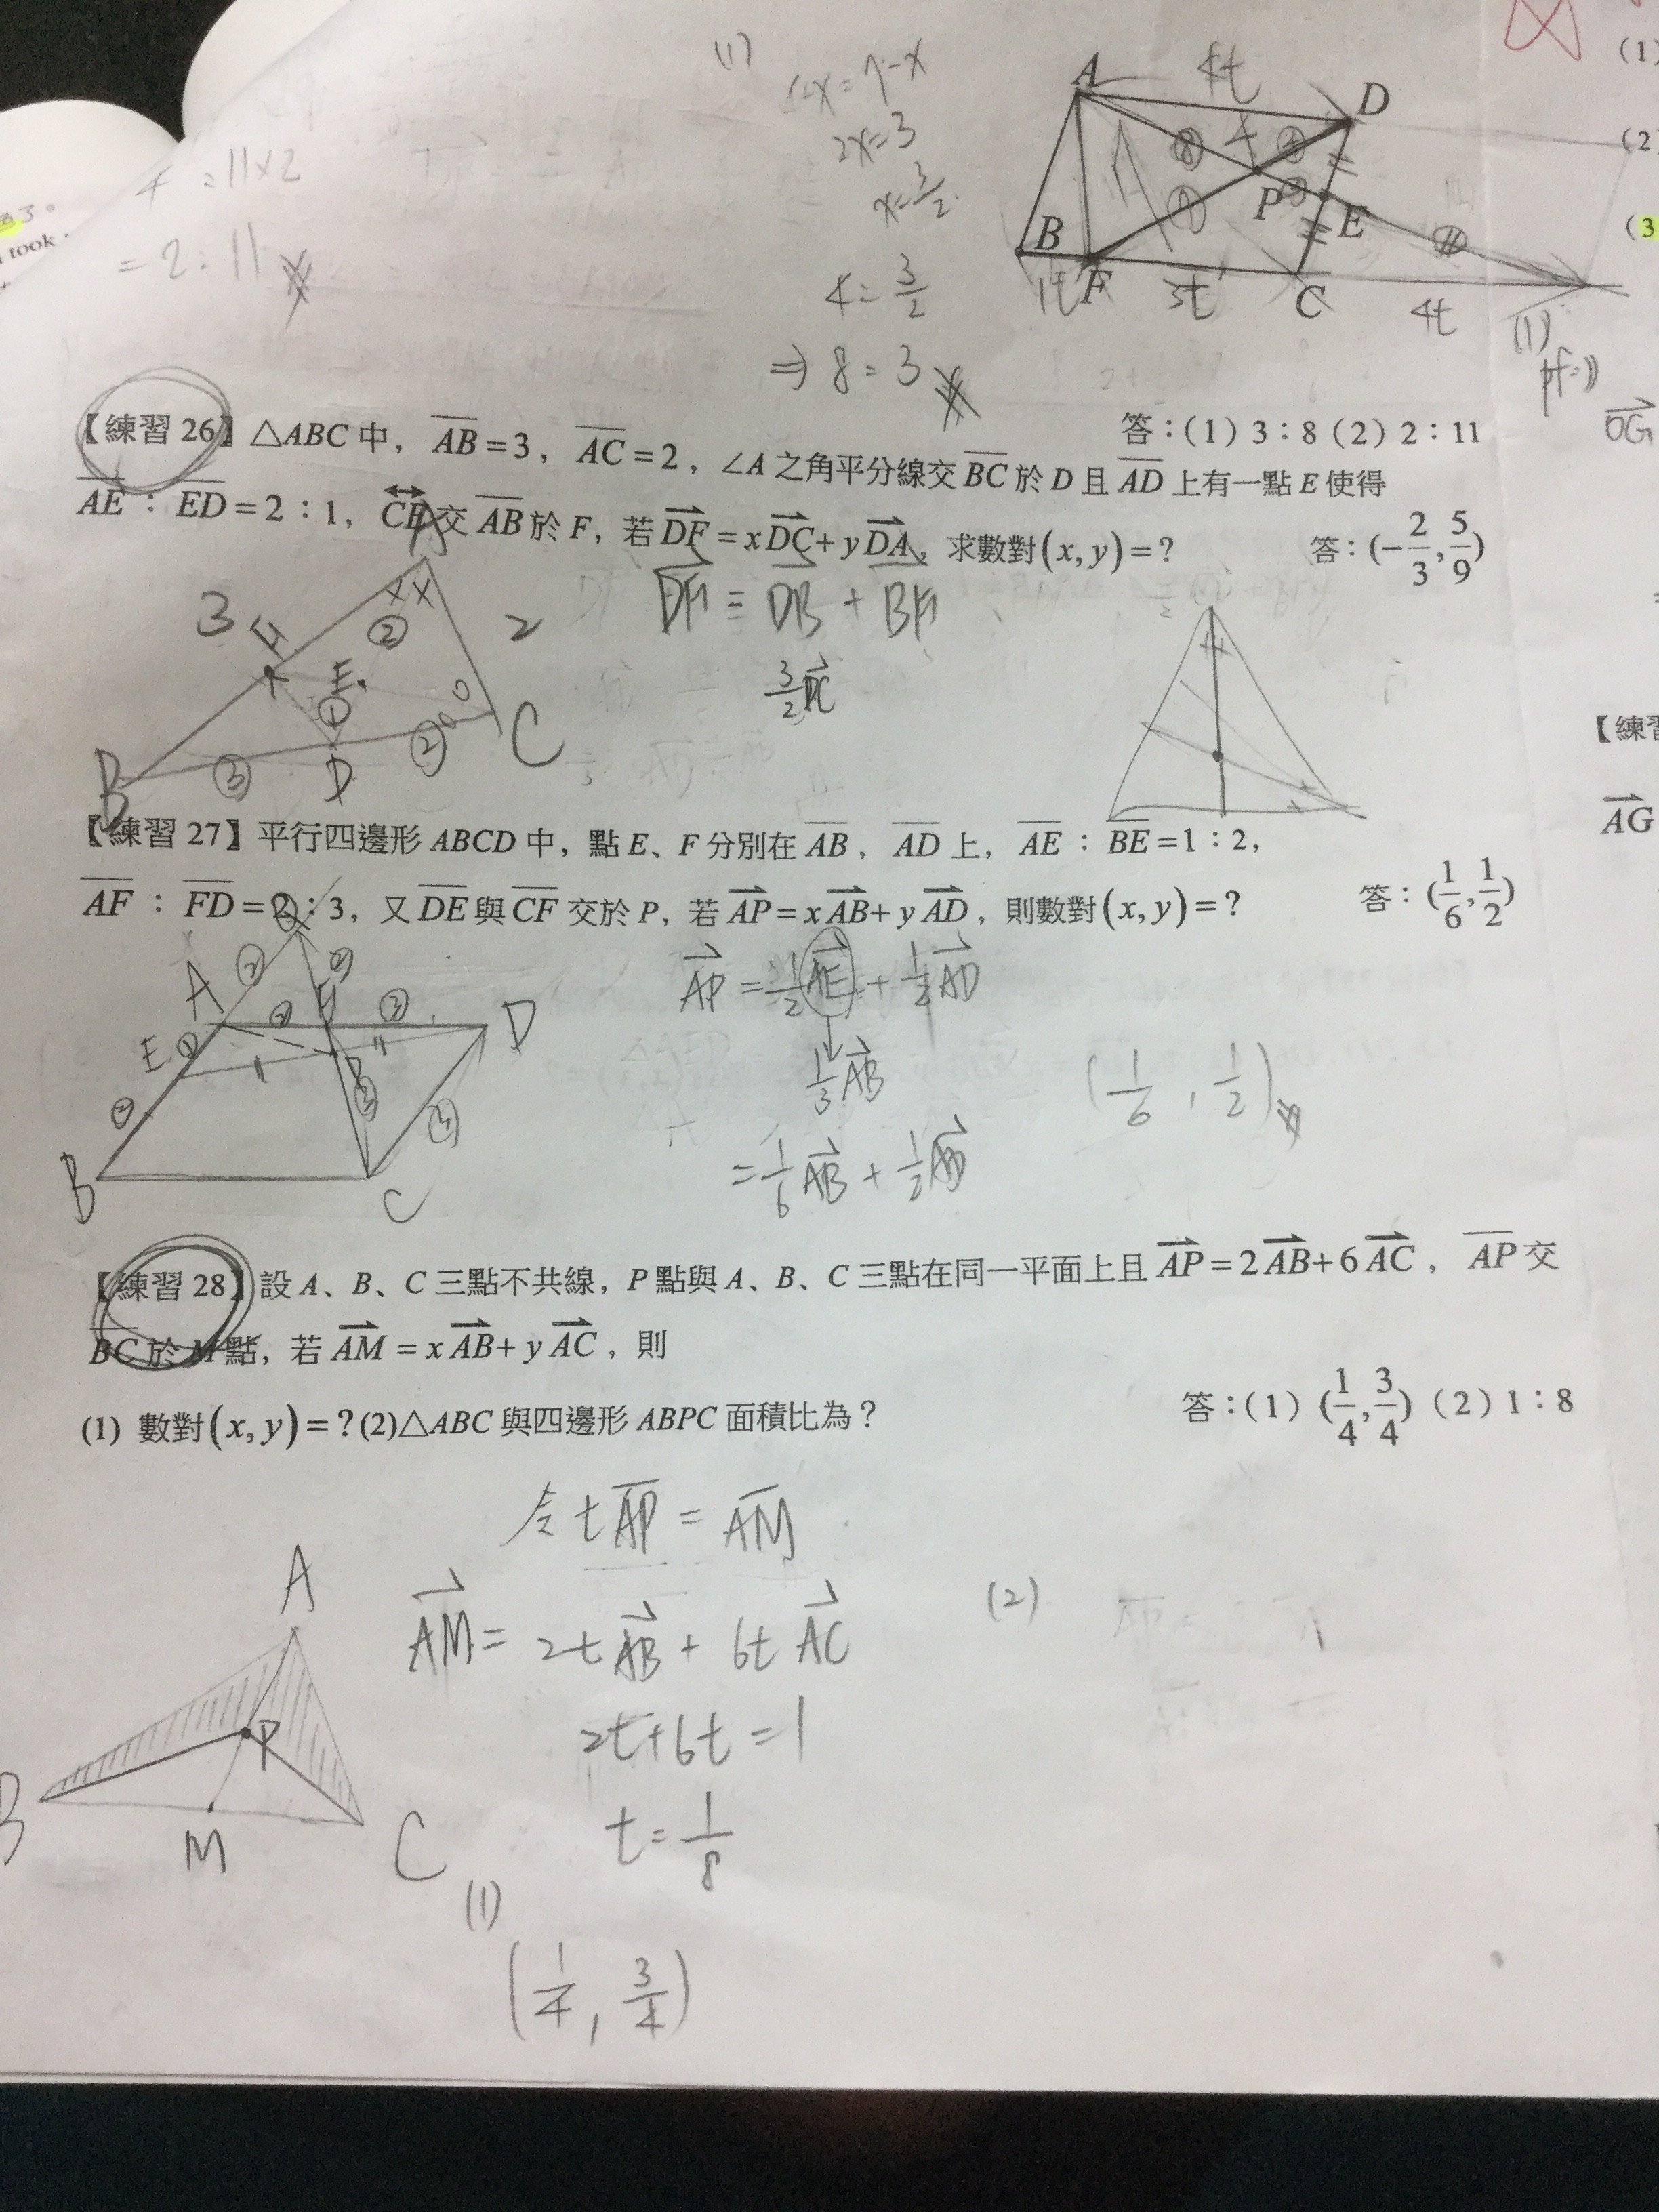 (1)
2x=3
x=3/2
4=3/2
⇒ 8=3
=11×2
=2:11
took
A
4t
D
⑧
P
E
B
F
C
1t
3t
4t
(1)
(1)
(2)
(3
【練習 26】△ABC 中，AB=3，AC=2，∠A 之角平分線交 BC 於 D 且 AD 上有一點 E 使得
答：(1) 3：8 (2) 2：11
AE：ED=2：1，CE 交 AB 於 F，若 DF=xDC+yDA，求數對(x, y)=？ 答：(-2/3, 5/9)
OG
DF = DB + BF
3/2 DC
A
3
2
F
②
E
①
B
③
D
②
C
【練習
AG
【練習 27】平行四邊形 ABCD 中，點 E、F 分別在 AB，AD 上，AE：BE=1：2，
AF：FD=2：3，又 DE 與 CF 交於 P，若 AP=xAB+yAD，則數對(x, y)=？ 答：(1/6, 1/2)
AP = 1/2 AE + 1/2 AD
1/3 AB
= 1/6 AB + 1/2 AD
(1/6, 1/2)
A
②
②
③
D
E
①
②
③
B
C
【練習 28】設 A、B、C 三點不共線，P 點與 A、B、C 三點在同一平面上且 AP=2AB+6AC，AP 交
BC 於 M 點，若 AM = xAB+yAC，則
(1) 數對(x, y)=？(2)△ABC 與四邊形 ABPC 面積比為？ 答：(1) (1/4, 3/4) (2) 1：8
令 t AP = AM
AM = 2t AB + 6t AC
(2)
2t+6t=1
t=1/8
A
P
B
M
C
(1)
(1/4, 3/4)